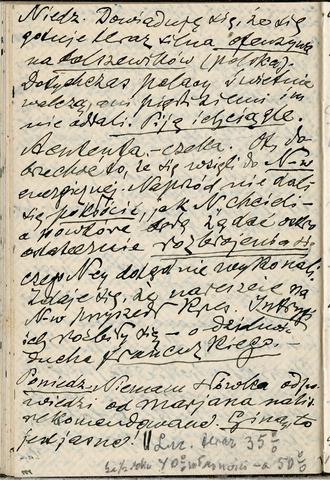 Niedz. Dowiaduję się, że się
gotuje teraz silna ofenzywa
na bolszewików (polska).
Dotychczas polacy świetnie
walczą, ani piędzi ziemi im
nie oddali. Biją ich ciągle.
A ententa – czeka. Ot, do
brze choć to, że się wzięli do N-w
energiczniej. Naprzód nie dali
się pokłócić, jak N. chcieli –
a powtóre będą żądać
ostatecznie rozbrojenia się
czego N-cy dotąd nie wykonali.
Zdaje się, że nareszcie na
N-w przyszedł kres. Intrygi
ich rozbiły się – o dzielność
ducha francuskiego. –
Poniedz. Niemam słówka odpo
wiedzi od marjana na list
rekomendowany. Giną, to
jest jasne! || teraz 35%
40% a 50%